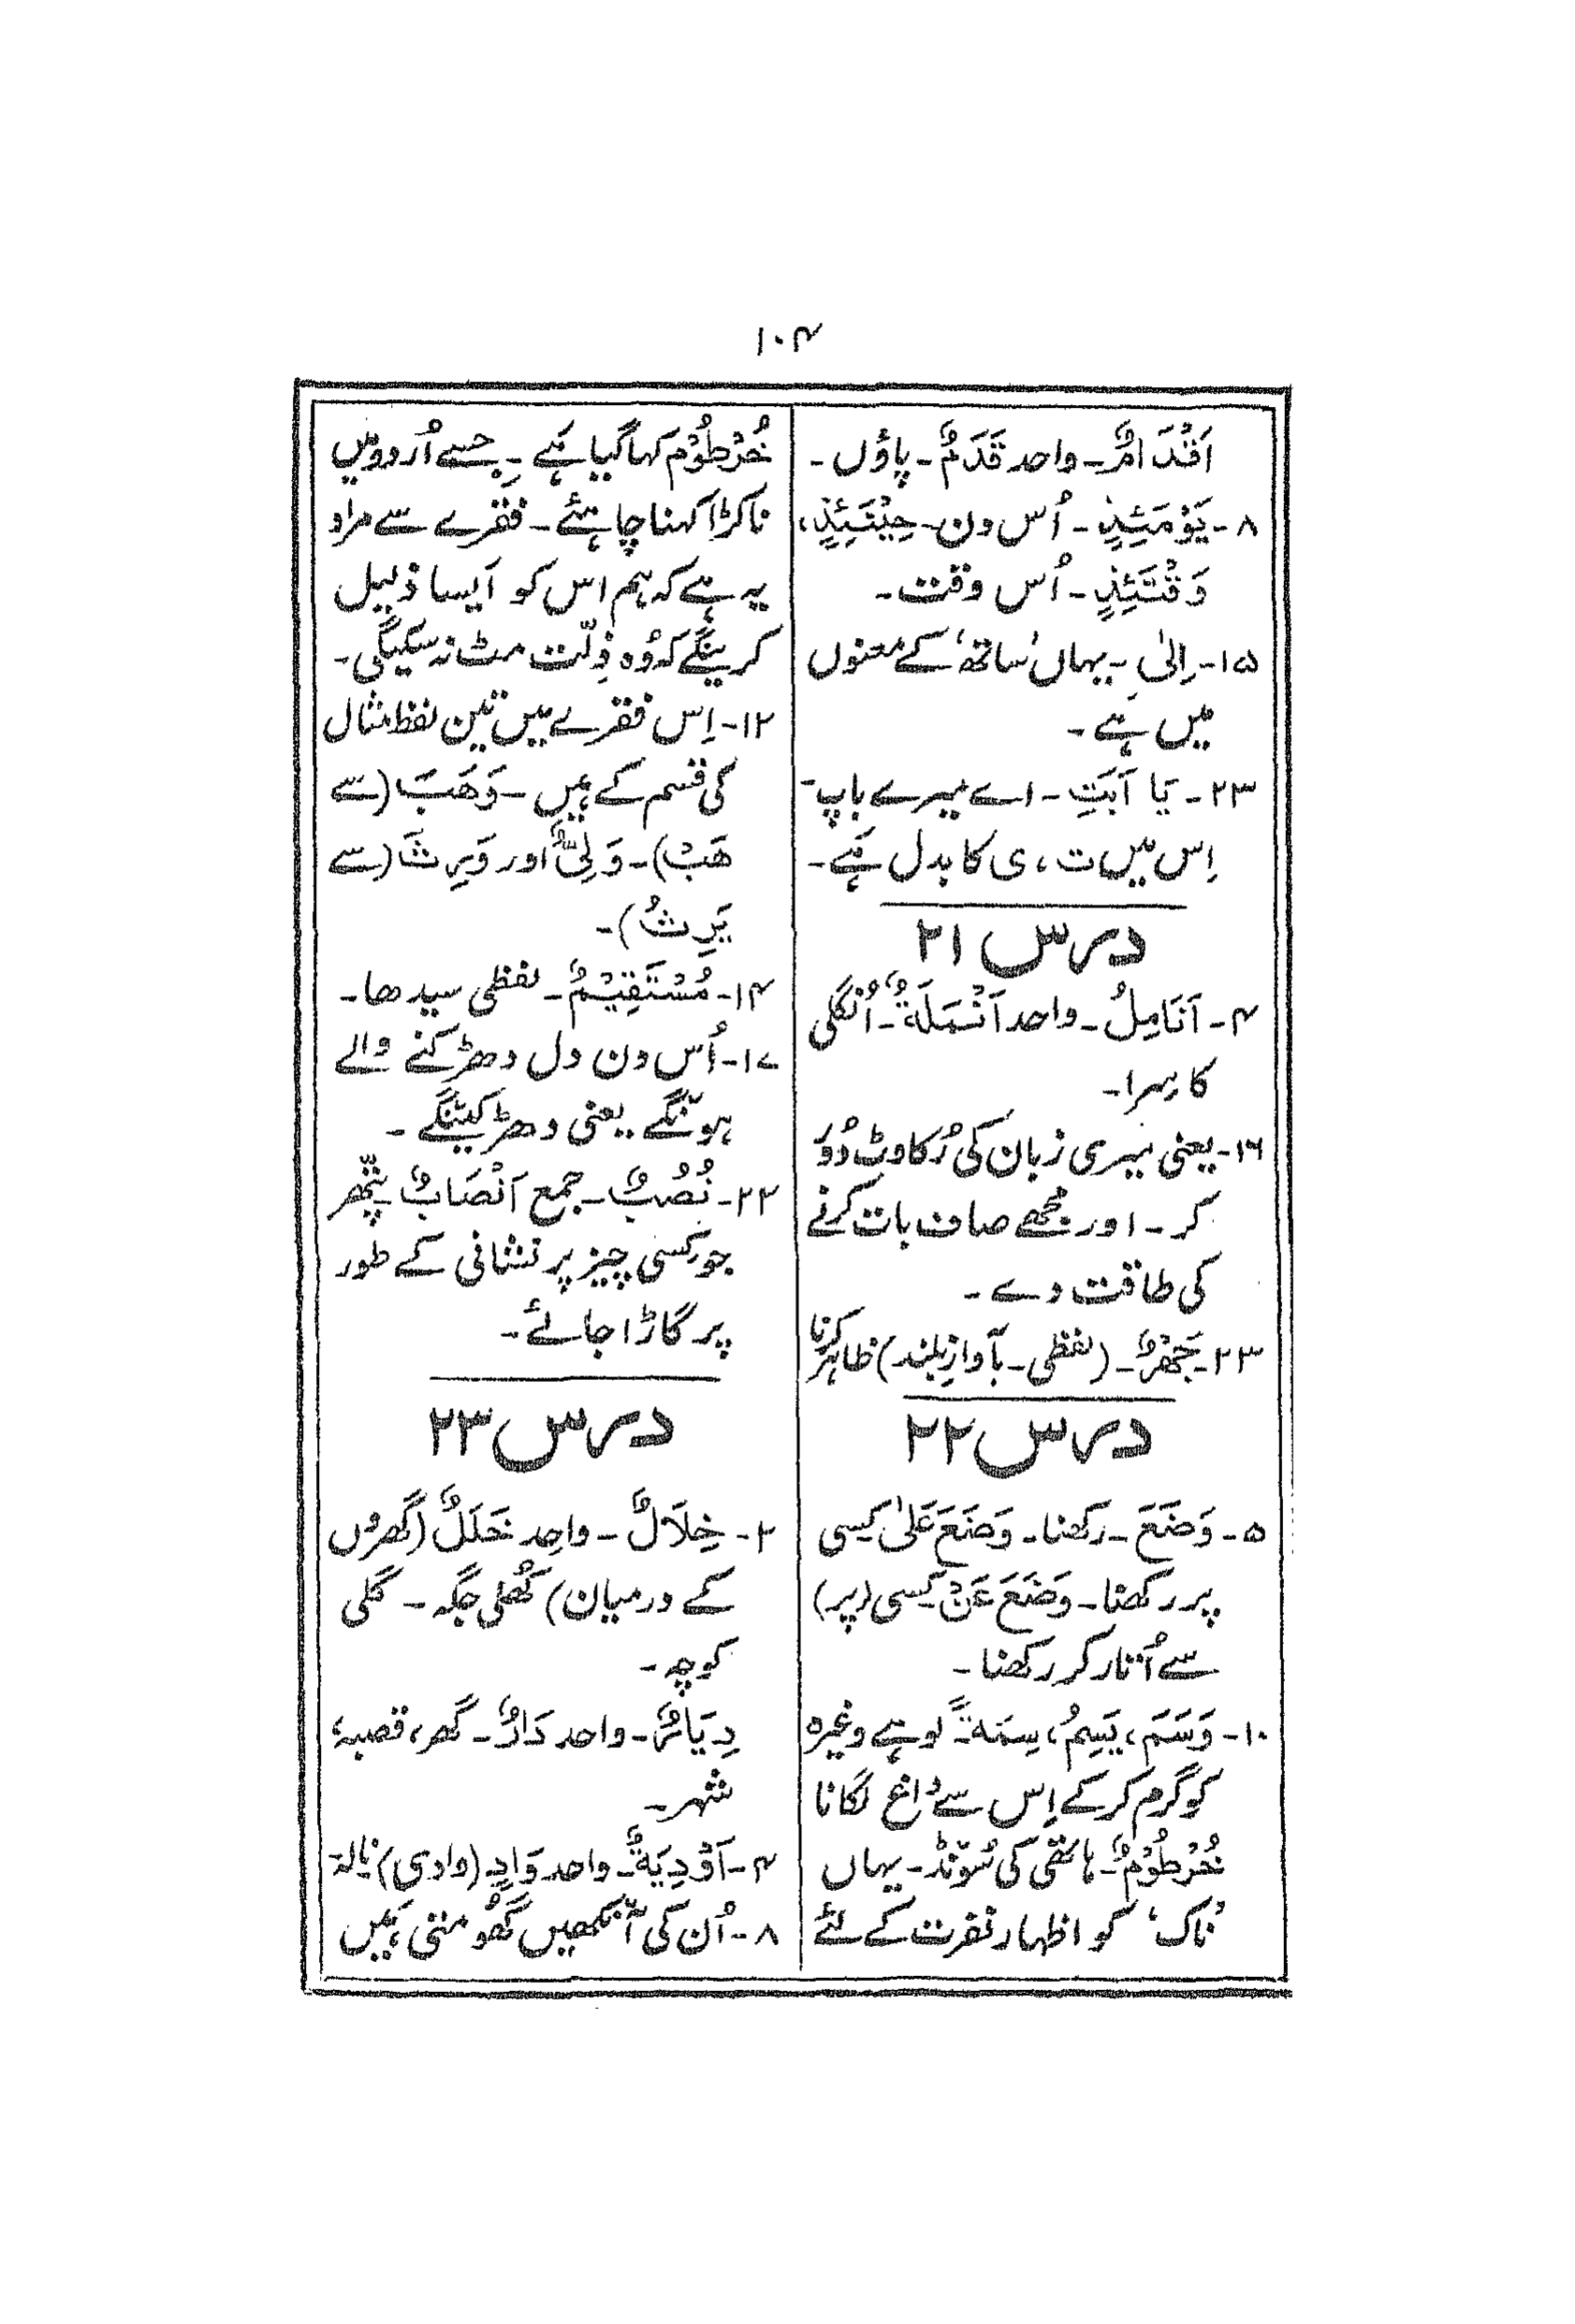 ۱۰۴
اَقْدَامٌ۔ واحد قَدَمٌ۔ پاؤں۔
۸۔ یَوْمَئِذٍ۔ اُس دن۔ حِیْنَئِذٍ،
وَقْتَئِذٍ۔ اُس وقت۔
۱۵۔ اِلیٰ۔ یہاں ’ساتھ‘ کے معنوں
میں ہے۔
۲۳۔ یَا اَبَتِ۔ اے میرے باپ۔
اِس میں ت، ی کا بدل ہے۔
درس ۲۱
۴۔ اَنَامِلُ۔ واحد اَنْمَلَةٌ۔ اُنگلی
کا سِرا۔
۱۶۔ یعنی میری زبان کی رُکاوٹ دُور
کر۔ اور مجھے صاف بات کرنے
کی طاقت دے۔
۲۳۔ جَھْرٌ۔ (لفظی۔ بآوازِ بلند) ظاہر کرنا
درس ۲۲
۵۔ وَضَعَ۔ رکھنا۔ وَضَعَ عَلیٰ کِسی
پر رکھنا۔ وَضَعَ عَنْ کِسی (پر)
سے اُتار کر رکھنا۔
۱۰۔ وَسَمَ، یَسِمُ، سِمَةً لوہے وغیرہ
کو گرم کر کے اِس سے داغ لگانا
خُرْطُوْمٌ۔ ہاتھی کی سُونڈ۔ یہاں
’ناک‘ کو اظہار نفرت کے لئے
خُرْطُوْم کہا گیا ہے۔ جسے اُردو میں
ناکڑا کہنا چاہئے۔ فقرے سے مراد
یہ ہے کہ ہم اس کو اَیسا ذلیل
کرینگے کہ وُہ ذِلّت مٹ نہ سکیگی۔
۱۲۔ اِس فقرے میں تین لفظ مثال
کی قسم کے ہیں۔ وَھَبَ (سے
ھَبْ)۔ وَلِیٌّ اور وَرِثَ (سے
یَرِثُ)۔
۱۴۔ مُسْتَقِیْمٌ۔ لفظی سیدھا۔
۱۷۔ اُس دن دل دھڑکنے والے
ہونگے یعنی دھڑکینگے۔
۲۲۔ نُصُبٌ۔ جمع اَنْصَابٌ پتّھر
جو کسی چیز پر نشانی کے طور
پر گاڑا جائے۔
درس ۲۳
۲۔ خِلَالٌ۔ واحِد خَلَلٌ (گھروں
کے درمیان) کُھلی جگہ۔ گلی
کوچہ۔
دِیَارٌ۔ واحد دَارٌ۔ گھر، قصبہ،
شہر۔
۴۔ اَوْدِیَةٌ۔ واحد وَادٍ (وادی) نالہ
۸۔ اُن کی آنکھیں گُھومتی ہَیں